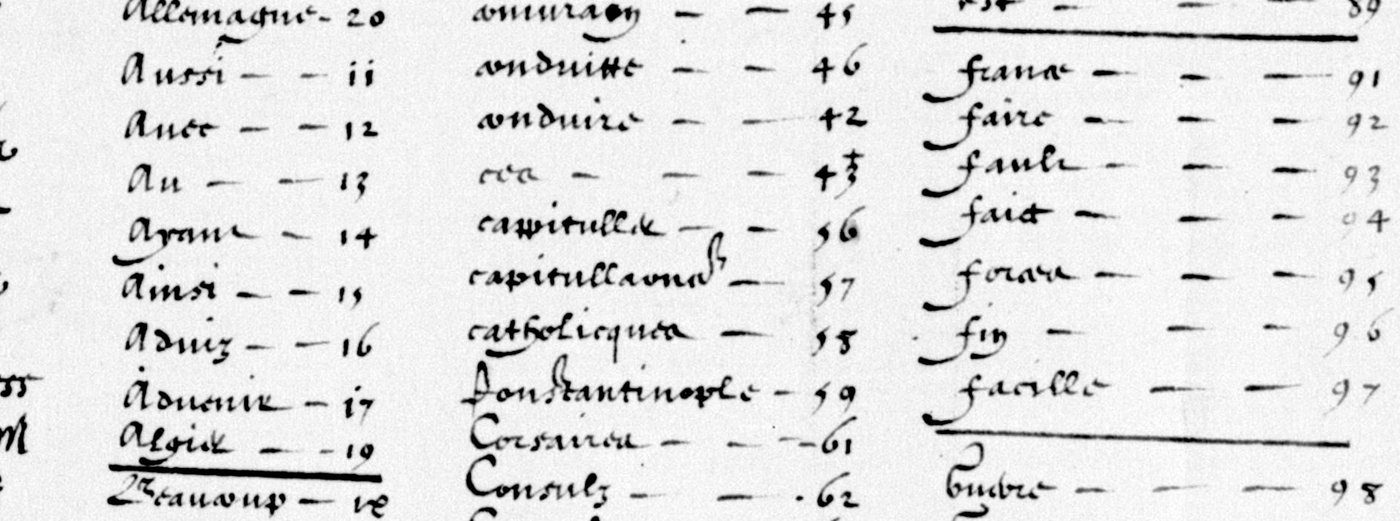 Allemagne - 20
Aussi - - 11
Avec - - 12
Au - - 13
Ayant - 14
Ainsi - - 15
Adviz - - 16
Advenir - 17
Algier - - 19
Beaucoup - 18
- - 45
conduitte - - 46
conduire - - 42
ces - - - 43
cappituller - - 56
capitullations - 57
catholicques - 58
Constantinople - 59
Corsaires - - - 61
Consulz - - 62
est - - - 89
france - - - 91
faire - - - 92
fault - - - 93
faict - - - 94
forces - - - 95
fin - - - 96
facille - - 97
Guerre - - - 98